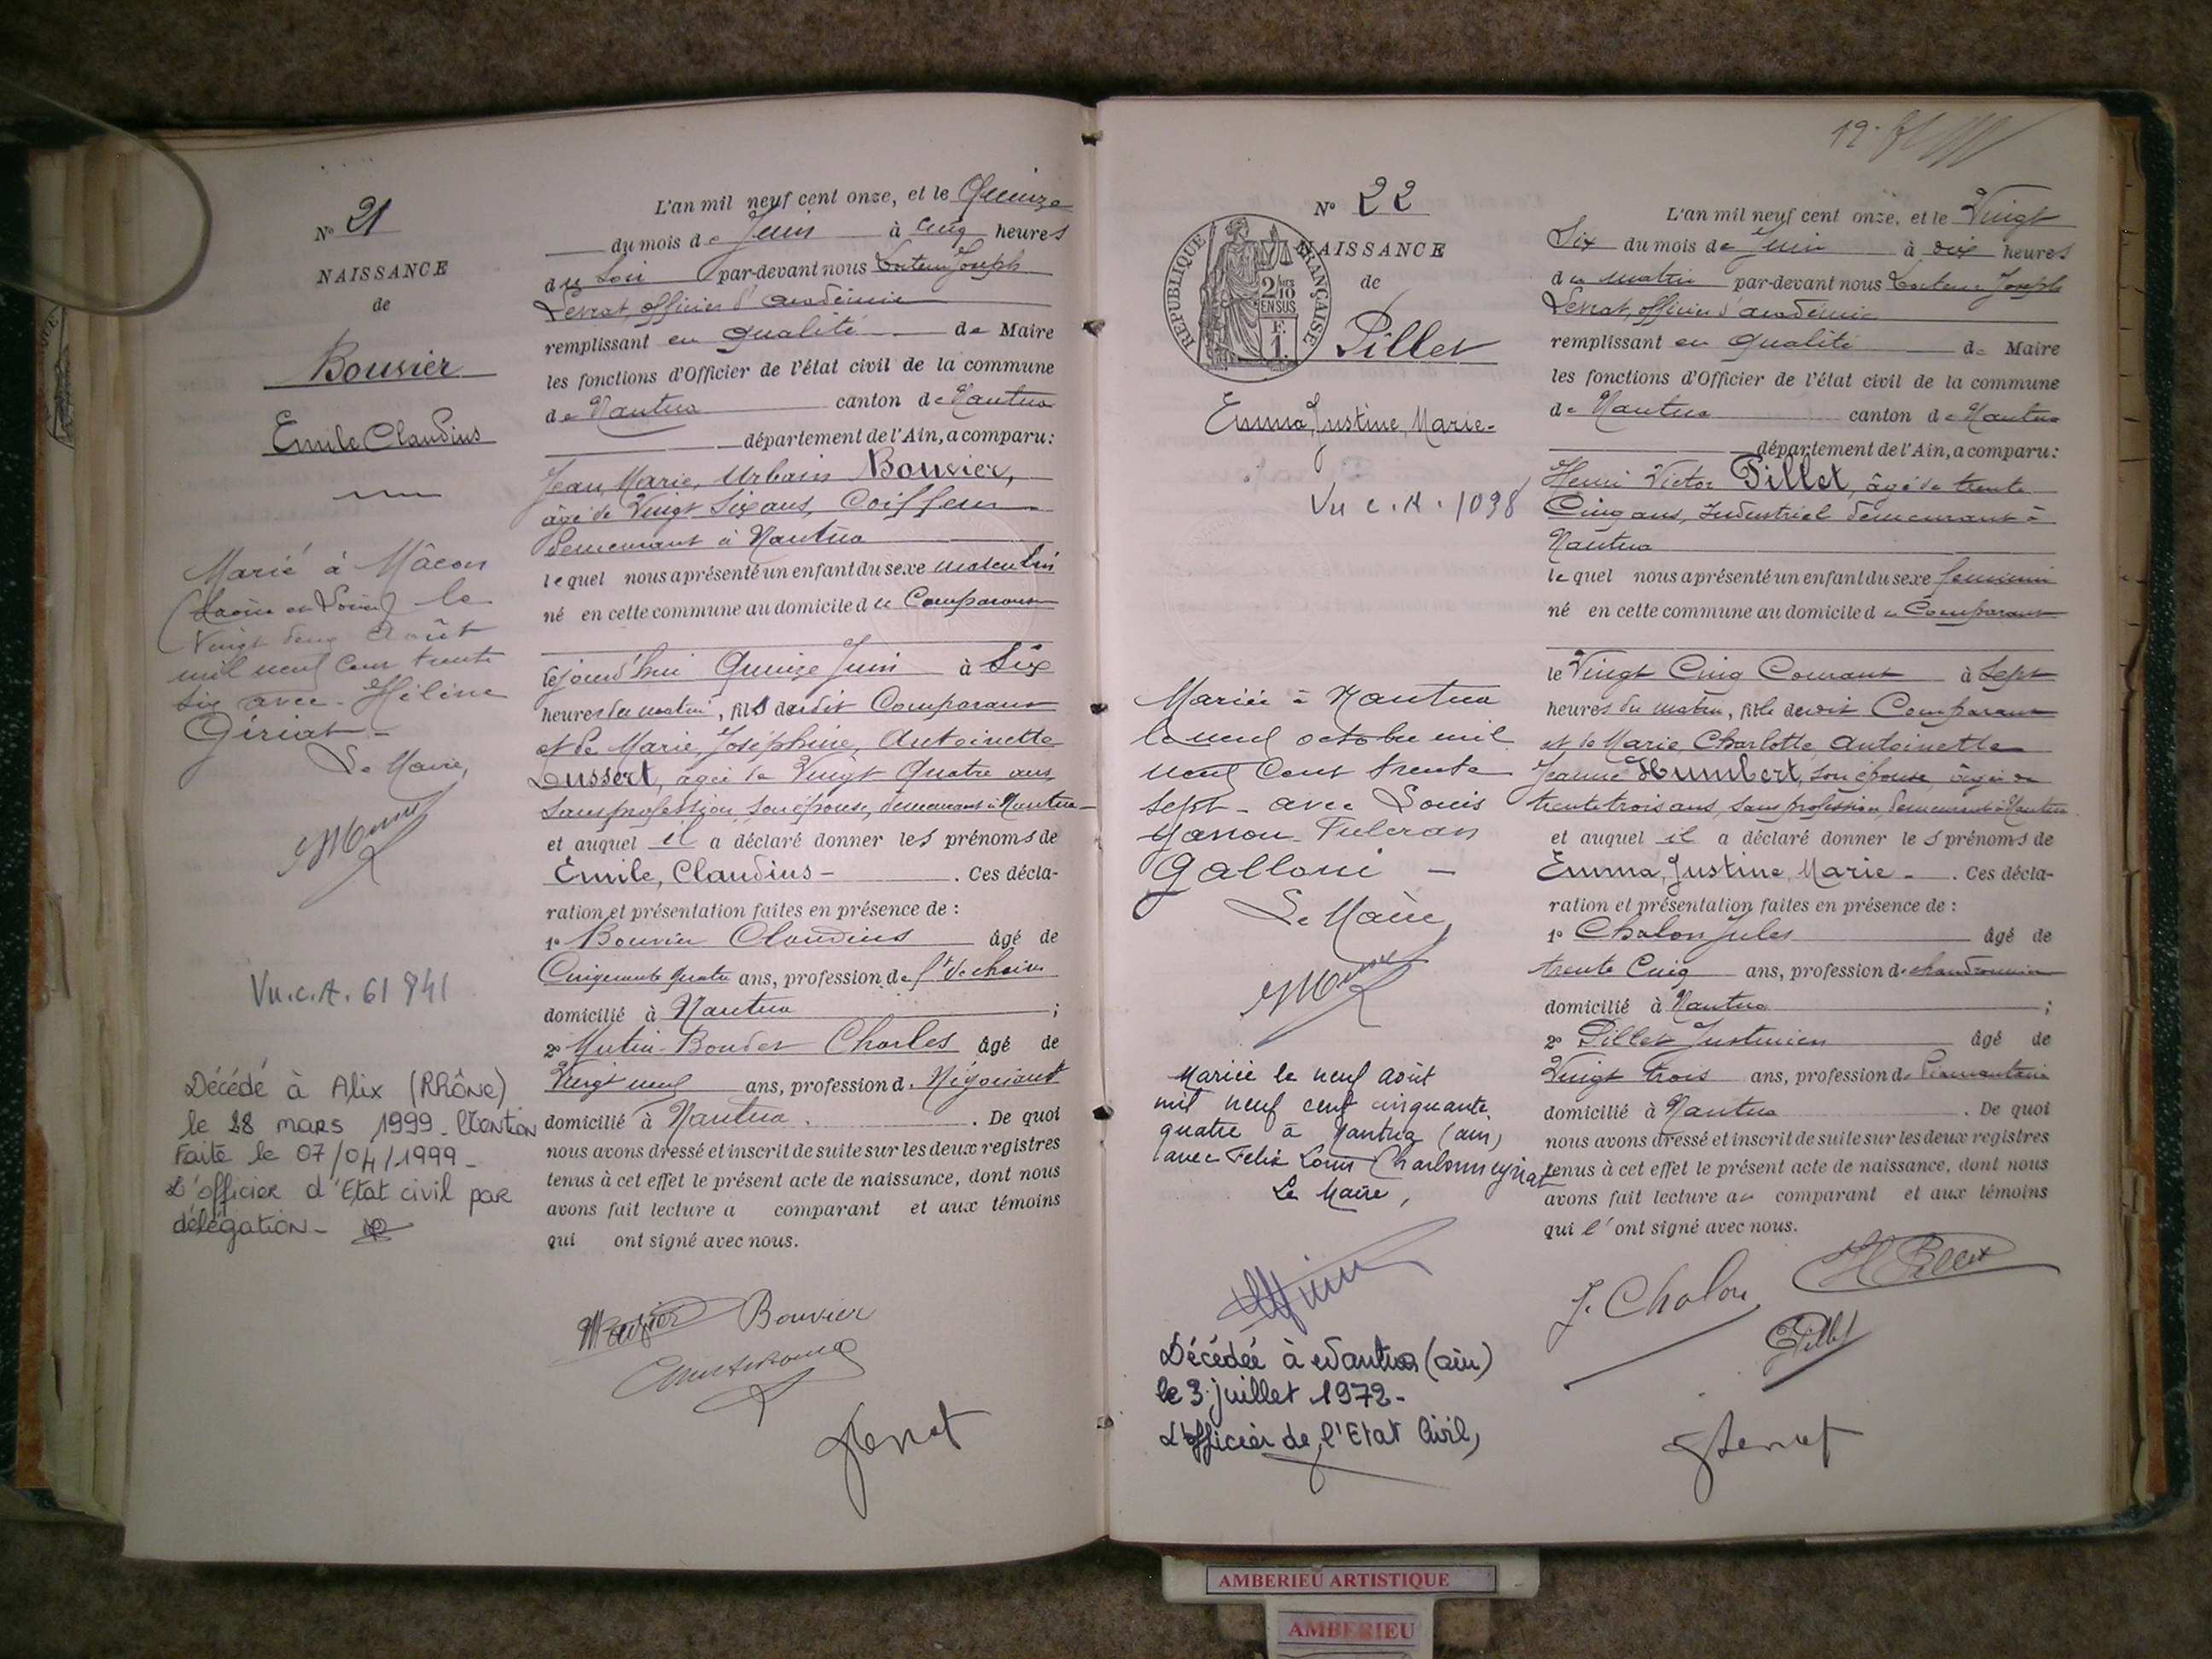 N° 21
NAISSANCE
de
Bouvier
Emile Claudius
Marié à Mâcon
(Saône et Loire) le
Vingt deux Août
mil neuf cent trente
six avec - Hélène
Giriat -
Le Maire,
Vu.c.A. 61 841
Décédé à Alix (Rhône)
le 28 mars 1999 - Mention
Faite le 07/04/1999 -
L'officier d'Etat civil par
délégation -
L'an mil neuf cent onze, et le Quinze
du mois de Juin à cinq heures
du soir par-devant nous Docteur Joseph
Levrat, officier d'académie
remplissant en qualité de Maire
les fonctions d'Officier de l'état civil de la commune
de Nantua canton de Nantua
département de l'Ain, a comparu:
Jean, Marie, Urbain Bouvier,
âgé de Vingt Six ans, Coiffeur
demeurant à Nantua
lequel nous a présenté un enfant du sexe masculin
né en cette commune au domicile du Comparant
le jourd'hui Quinze Juin à Six
heures du matin, fils dudit Comparant
et de Marie, Joséphine, Antoinette
Dussert, âgée de Vingt Quatre ans
sans profession, son épouse, demeurant à Nantua
et auquel il a déclaré donner les prénoms de
Emile, Claudius - . Ces décla-
ration et présentation faites en présence de :
1° Bouvier Claudius âgé de
Cinquante quatre ans, profession de
domicilié à Nantua ;
2° Mutin-Boudet Charles âgé de
Vingt neuf ans, profession d. Négociant
domicilié à Nantua . De quoi
nous avons dressé et inscrit de suite sur les deux registres
tenus à cet effet le présent acte de naissance, dont nous
avons fait lecture a comparant et aux témoins
qui ont signé avec nous.
Bouvier
Levrat
N° 22
NAISSANCE
de
RÉPUBLIQUE FRANÇAISE
2/10
EN SUS
F.
1.
Pillet
Emma, Justine, Marie -
Vu c.A. 1098
Mariée à Nantua
le neuf octobre mil
neuf cent trente
sept - avec Louis
Fulcran
Galloni -
Le Maire,
Mariée le neuf août
mil neuf cent cinquante
quatre à Nantua (ain)
avec Felix Louis Charbonneyriat
Le Maire,
Décédée à Nantua (ain)
le 3 juillet 1972 -
L'officier de l'Etat Civil,
L'an mil neuf cent onze, et le Vingt
Six du mois de Juin à dix heures
du matin par-devant nous Docteur Joseph
Levrat, officier d'académie
remplissant en qualité de Maire
les fonctions d'Officier de l'état civil de la commune
de Nantua canton de Nantua
département de l'Ain, a comparu:
Henri Victor Pillet, âgé de trente
Cinq ans, Industriel demeurant à
Nantua
lequel nous a présenté un enfant du sexe feminin
né en cette commune au domicile du Comparant
le Vingt Cinq Courant à Sept
heures du matin, fille dudit Comparant
et de Marie, Charlotte, Antoinette
Jeanne Humbert, son épouse, âgée de
trente trois ans, sans profession, demeurant à Nantua
et auquel il a déclaré donner les prénoms de
Emma, Justine, Marie - . Ces décla-
ration et présentation faites en présence de :
1° Chalon Jules âgé de
trente Cinq ans, profession d.
domicilié à Nantua ;
2° Pillet Justinien âgé de
Vingt trois ans, profession d
domicilié à Nantua . De quoi
nous avons dressé et inscrit de suite sur les deux registres
tenus à cet effet le présent acte de naissance, dont nous
avons fait lecture au comparant et aux témoins
qui l'ont signé avec nous.
J. Chalon H Pillet
Pillet
Levrat
AMBERIEU ARTISTIQUE
AMBERIEU